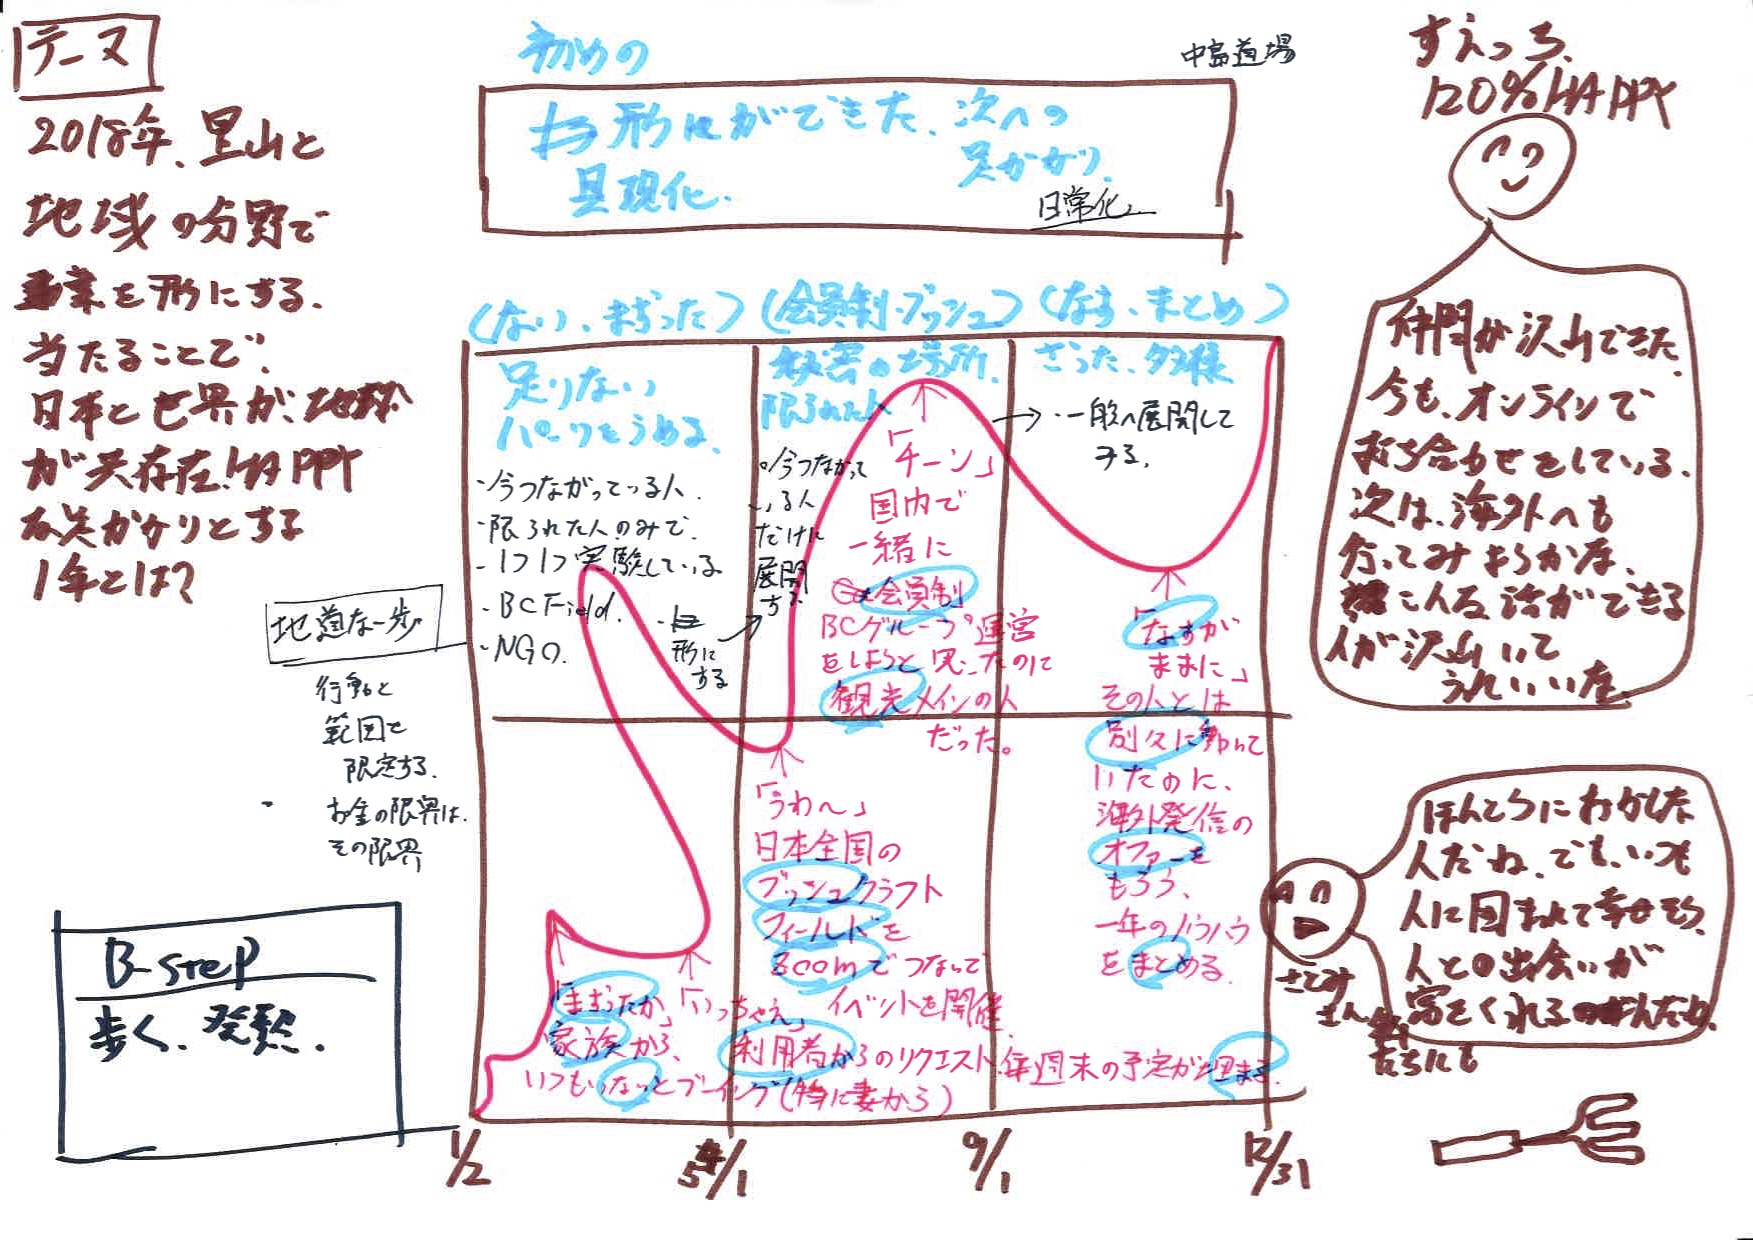 テーマ
2018年、里山と
地域の分野で
業を形にする.
当たることで.
日本と世界が、地球
が共存在、HAPPY
な足がかりとする
1年とは?
初めの
中島道場
形にができた、次への
足かがり.
具現化.
日常化
すえっち.
120%HAPPY
(ない、まずった)(会員制・ブッシュ)(なす、まとめ)
足りない
パーツをうめる.
秘密の場所.
限られた人
ざった、多様
・今つながっている人.
・限られた人のみで.
・1つ1つ実験している
・BC Field.
・NGO.
・形に
する
今つながって
いる人
だけに
展開
する
→・一般へ展開して
みる.
「チーン」
国内で
一緒に
会員制
BCグループ運営
をしようと思ったのに
観光メインの人
だった。
「なすが
ままに」
その人とは
別々に動いて
いたのに、
海外発信の
オファーを
もらう、
一年のノウハウ
をまとめる.
「うわ〜」
日本全国の
ブッシュクラフト
フィールドを
Zoomでつないで
イベントを開催.
「まずったか」
家族から、
いつもいないとブーイング(特に妻から)
「いっちゃえ」
利用者からのリクエスト.毎週末の予定が埋まる.
地道な一歩
行動と
範囲を
限定する.
お金の限界は.
その限界
B-step
歩く、発熱.
1/2
5/1
9/1
12/31
仲間が沢山できた
今も、オンラインで
打ち合わせをしている.
次は、海外へも
行ってみようかな、
こんな話ができる
人が沢山いて
うれしいな.
ほんとうにおかしな
人だね、でも、いつも
人に囲まれて幸せそう.
人との出会いが
富をくれるのなんだね.
さとみ
さん